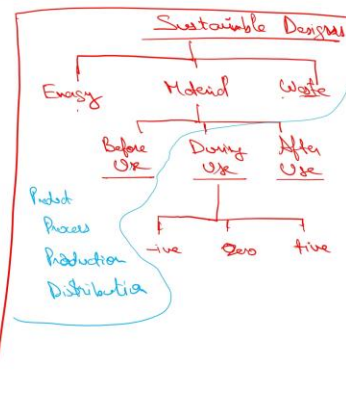 Sustainable Designs
Energy Material Waste
Before During After
Use Use Use
Product
Process
Production
Distribution
-ive Zero +ive